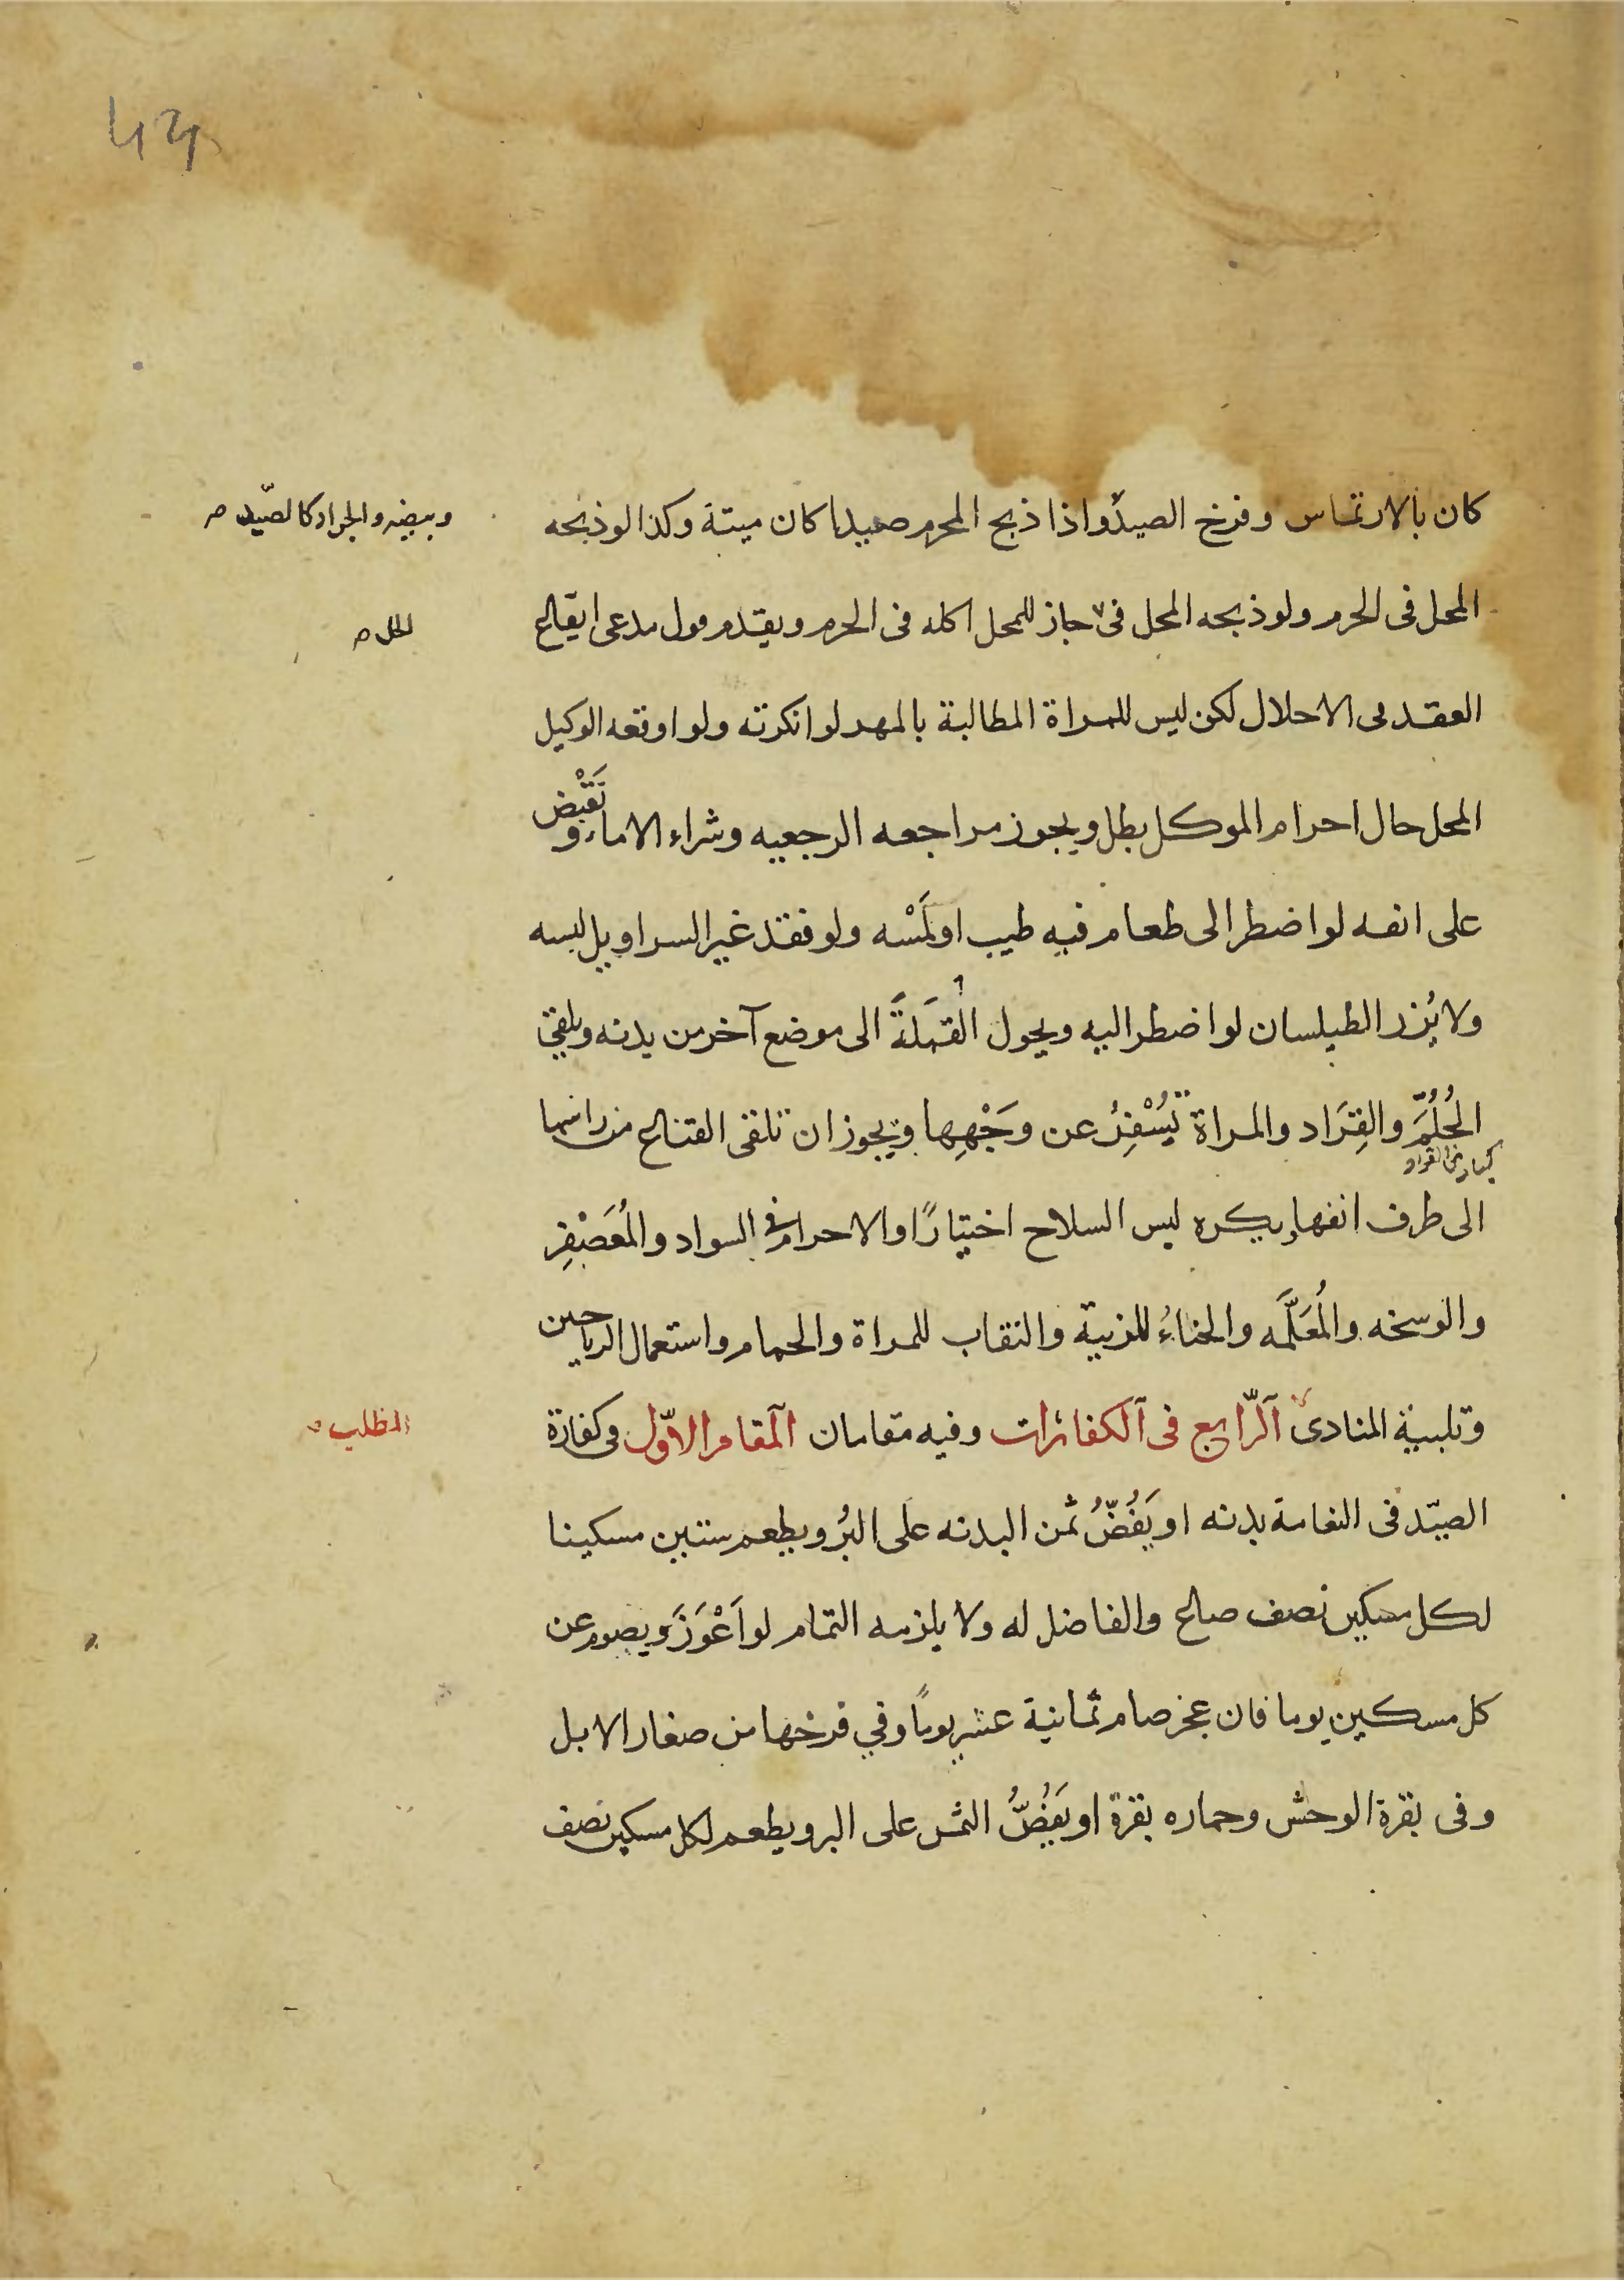 44
كان بالارتماس وفرخ الصيد واذا ذبح المحرم صيدا كان ميتة وكذا لو ذبحه
وبيضه والجراد كالصيّد صح
المحل فى الحرم ولو ذبحه المحل فى جاز للمحل اكله فى الحرم ويقدم قول مدعى ايقاع
الحل صح
العقد فى الاحلال لكن ليس للمراة المطالبة بالمهر لو انكرته ولو اوقعه الوكيل
المحل حال احرام الموكل بطل ويجوز مراجعه الرجعيه وشراء الاماء و نَقْبِض
على انفه لو اضطر الى طعام فيه طيب او لَمْسه ولو فقد غير السراويل لبسه
ولا يُزر الطيلسان لو اضطر اليه ويحول القَمَلةَ الى موضع آخر من بدنه ويلقي
الحُلُمَّ والقِرَاد والمراة تُسْفِرُ عن وَجْهِها ويجوز ان تلقى القناع من راسها
كبار من القراد
الى طرف انفها ويكره لبس السلاح اختيارًا والاحرام فى السواد والمُعَصْفِر
والوسخه والمُعَلَّمه والحناءُ للزينة والنقاب للمراة والحمام واستعمال الرياحين
وتلبية المنادى الرّابع فى الكفائرات وفيه مقامان المقام الاوّل فى كفارة
المطلب
الصيّد فى النعامة بدنه او يَفُضُّ ثمن البدنه على البُر ويطعم ستين مسكينا
لكل مسكين نصف صاع والفاضل له ولا يلزمه التمام لو اَعْوَزَ ويصوم عن
كل مسكين يوما فان عجز صام ثمانية عشر يومًا وفي فرخها من صغار الابل
وفى بقرة الوحش وحماره بقرة او يَفُضُّ الثمن على البر ويطعم لكل مسكين نصف